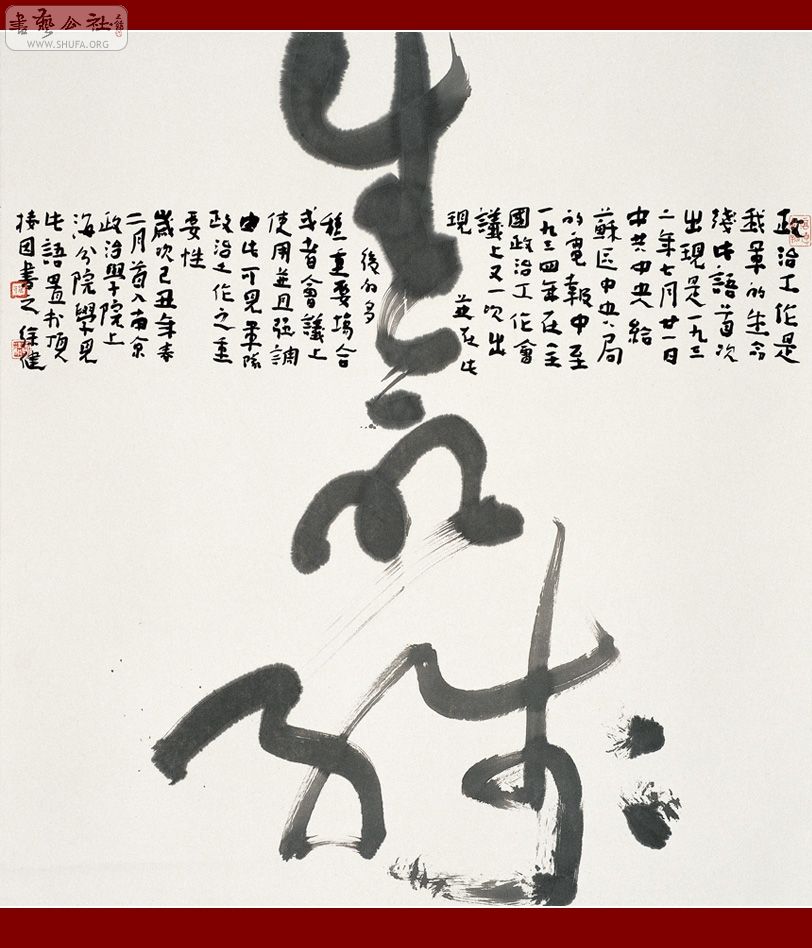 書藝公社
WWW.SHUFA.ORG
生命綫
政治工作是
我軍的生命
綫此語首次
出現是一九三
二年七月廿一日
中共中央給
蘇區中央局
的電報中至
一九三四年在全
國政治工作會
議上又一次出
現 並在此
後的多
種重要場合
或者會議上
使用並且強調
由此可見軍隊
政治工作之重
要性
歲次己丑年春
二月首入南京
政治學院上
海分院學習見
此語置於頂
接因書之 徐健